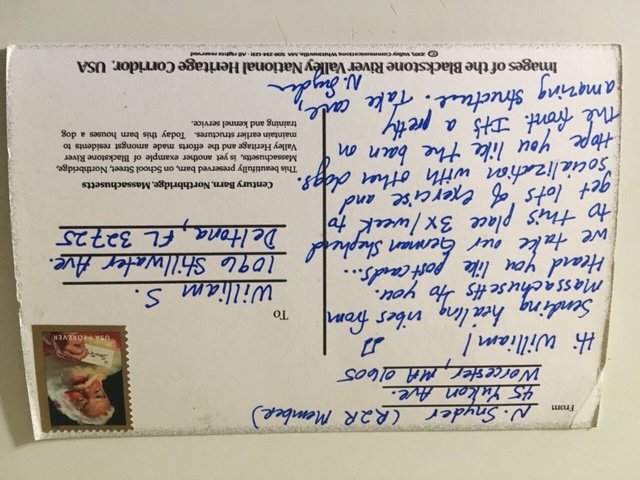 From
N. Snyder (R2R Member)
45 Yukon Ave.
Worcester, MA 01605
Hi William!
Sending healing vibes from
Massachusetts to you.
Heard you like postcards...
we take our German Shepherd
to this place 3x/week to
get lots of exercise and
socialization with other dogs.
Hope you like the barn on
the front. It's a pretty
amazing structure. Take care,
N. Snyder
USA FOREVER
To
William S.
1096 Stillwater Ave.
Deltona, FL 32725
Century Barn, Northbridge, Massachusetts
This beautifully preserved barn, on School Street, Northbridge,
Massachusetts, is yet another example of Blackstone River
Valley Heritage and the efforts made amongst residents to
maintain earlier structures. Today this barn houses a dog
training and kennel service.
Images of the Blackstone River Valley National Heritage Corridor, USA
© 2005, Valley Communications, Whitinsville, MA 508 234 - All rights reserved